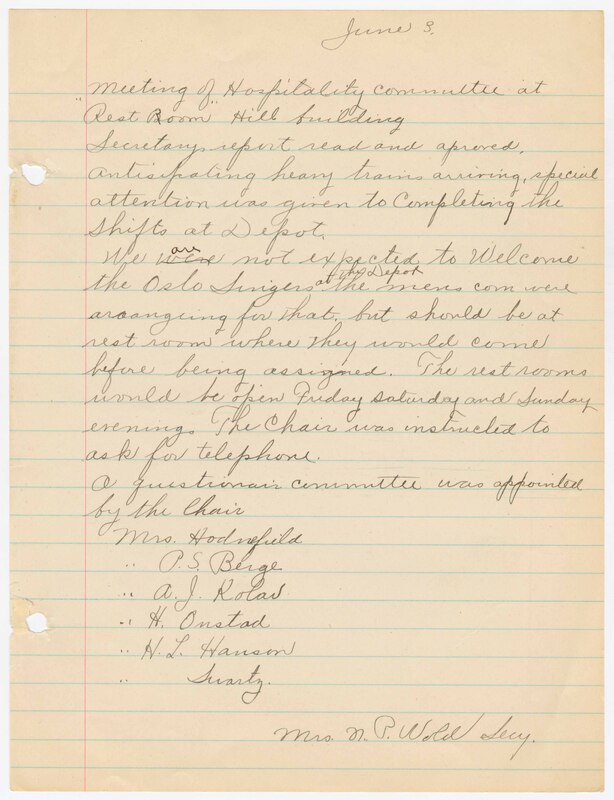 June 3.
Meeting of Hospitality committee at
"Rest Room" Hill building
Secretarys report read and aproved.
Antisipating heavy trains arriving, special
attention was given to Completing the
Shifts at Depot.
We were are not expected to Welcome
the Oslo Singers at the Depot the mens com were
araanging for that, but should be at
rest room where they would come
before being assigned. The rest rooms
would be open Friday Saturday and Sunday
evenings The Chair was instructed to
ask for telephone.
A questionair committee was appointed
by the Chair
Mrs. Hodnefield
" P.S. Berge
" A.J. Kolar
" H. Onstad
" H.L. Hanson
" Swartz.
Mrs. N.P. Wold Secy.